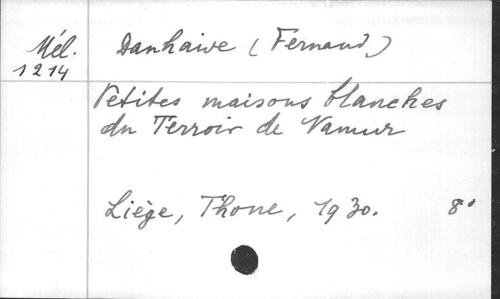 Mél. Danhaive (Fernand)
1214
Petites maisons blanches
du Terroir de Namur
Liège, Thone, 1930. 8°